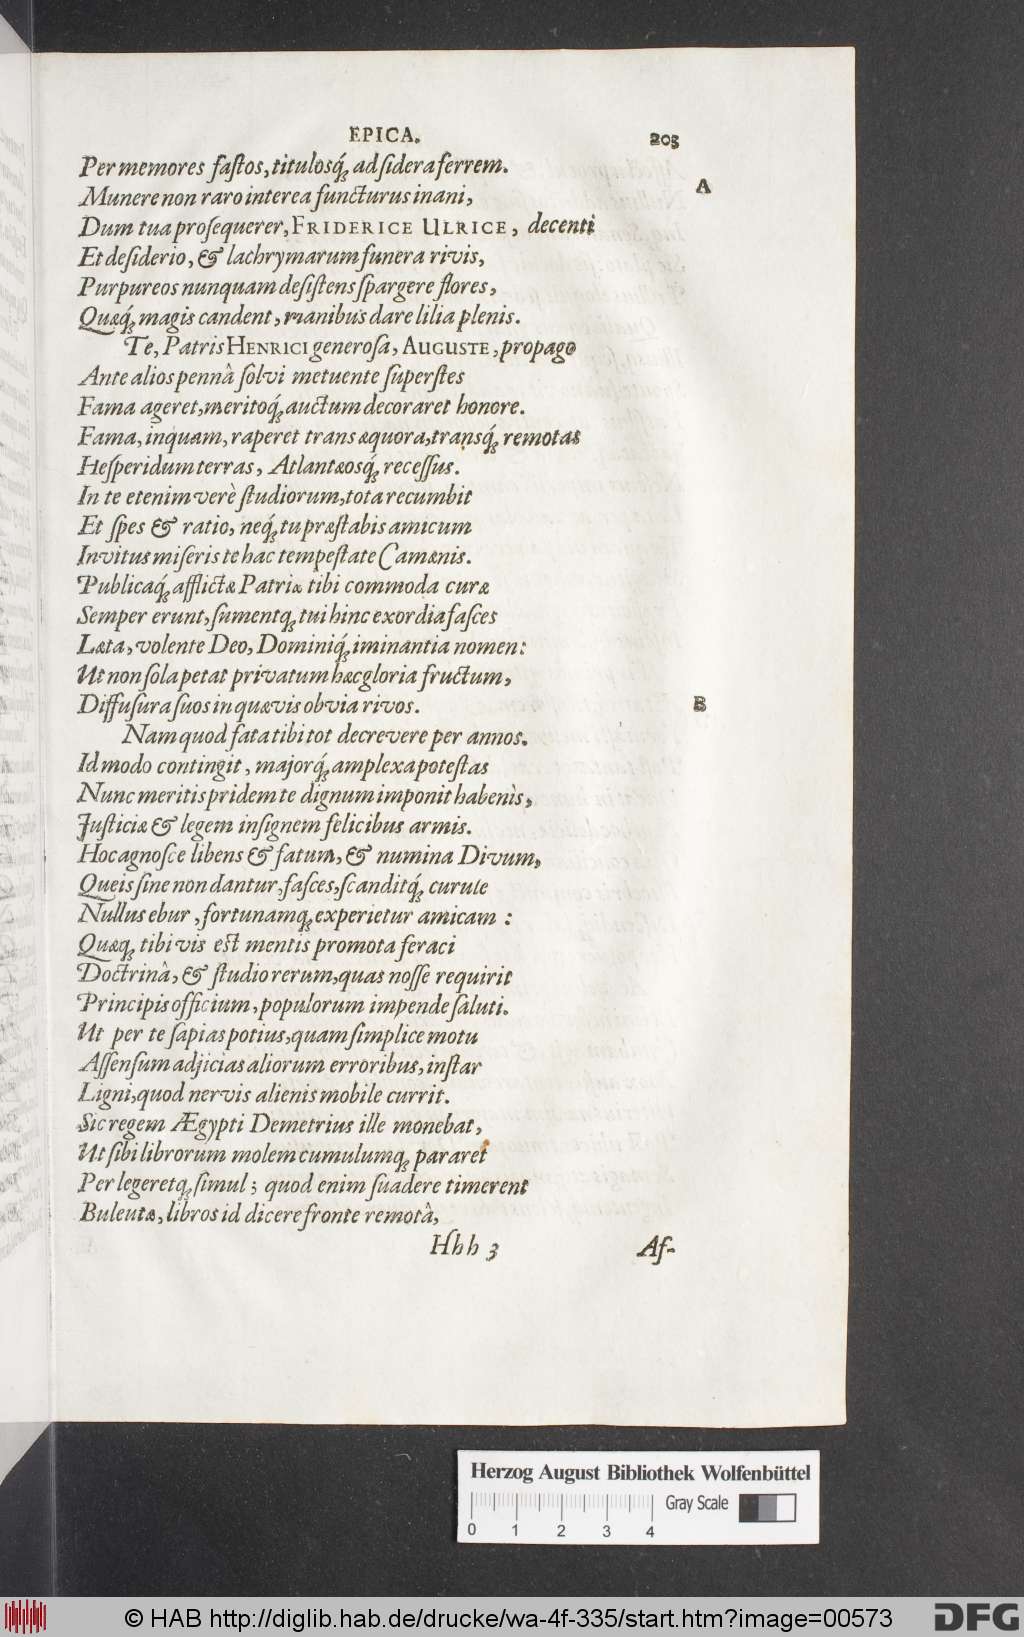 EPICA. 205
Per memores faſtos, titulosq́; ad ſidera ferrem.
A
Munere non raro interea functurus inani,
Dum tua proſequerer, FRIDERICE ULRICE, decenti
Et deſiderio, & lachrymarum funera rivis,
Purpureos nunquam deſiſtens ſpargere flores,
Quæq́; magis candent, manibus dare lilia plenis.
Te, Patris HENRICI generoſa, AUGUSTE, propago
Ante alios pennâ ſolvi metuente ſuperſtes
Fama ageret, meritoq́; auctum decoraret honore.
Fama, inquam, raperet trans æquora, transq́; remotas
Heſperidum terras, Atlantæosq́; receſſus.
In te etenim verè ſtudiorum, tota recumbit
Et ſpes & ratio, neq́; tu præſtabis amicum
Invitus miſeris te hac tempeſtate Camænis.
Publicaq́; afflictæ Patriæ tibi commoda curæ
Semper erunt, ſumentq; tui hinc exordia faſces
Læta, volente Deo, Dominiq́; iminantia nomen:
Ut non ſola petat privatum hæc gloria fructum,
Diffuſura ſuos in quævis obvia rivos.
B
Nam quod fata tibi tot decrevere per annos.
Id modo contingit, majorq́; amplexa poteſtas
Nunc meritis pridem te dignum imponit habenis,
Juſticiæ & legem inſignem felicibus armis.
Hoc agnoſce libens & fatum, & numina Divum,
Queis ſine non dantur, faſces, ſcanditq́; curule
Nullus ebur, fortunamq; experietur amicam:
Quæq; tibi vis eſt mentis promota feraci
Doctrinâ, & ſtudio rerum, quas noſſe requirit
Principis officium, populorum impende ſaluti.
Ut per te ſapias potius, quam ſimplice motu
Aſſenſum adjicias aliorum erroribus, inſtar
Ligni, quod nervis alienis mobile currit.
Sic regem Ægypti Demetrius ille monebat,
Ut ſibi librorum molem cumulumq; pararet
Per legeretq; ſimul; quod enim ſuadere timerent
Buleutæ, libros id dicere fronte remotâ,
Hhh 3 Aſ-
Herzog August Bibliothek Wolfenbüttel
Gray Scale
0 1 2 3 4
© HAB http://diglib.hab.de/drucke/wa-4f-335/start.htm?image=00573 DFG